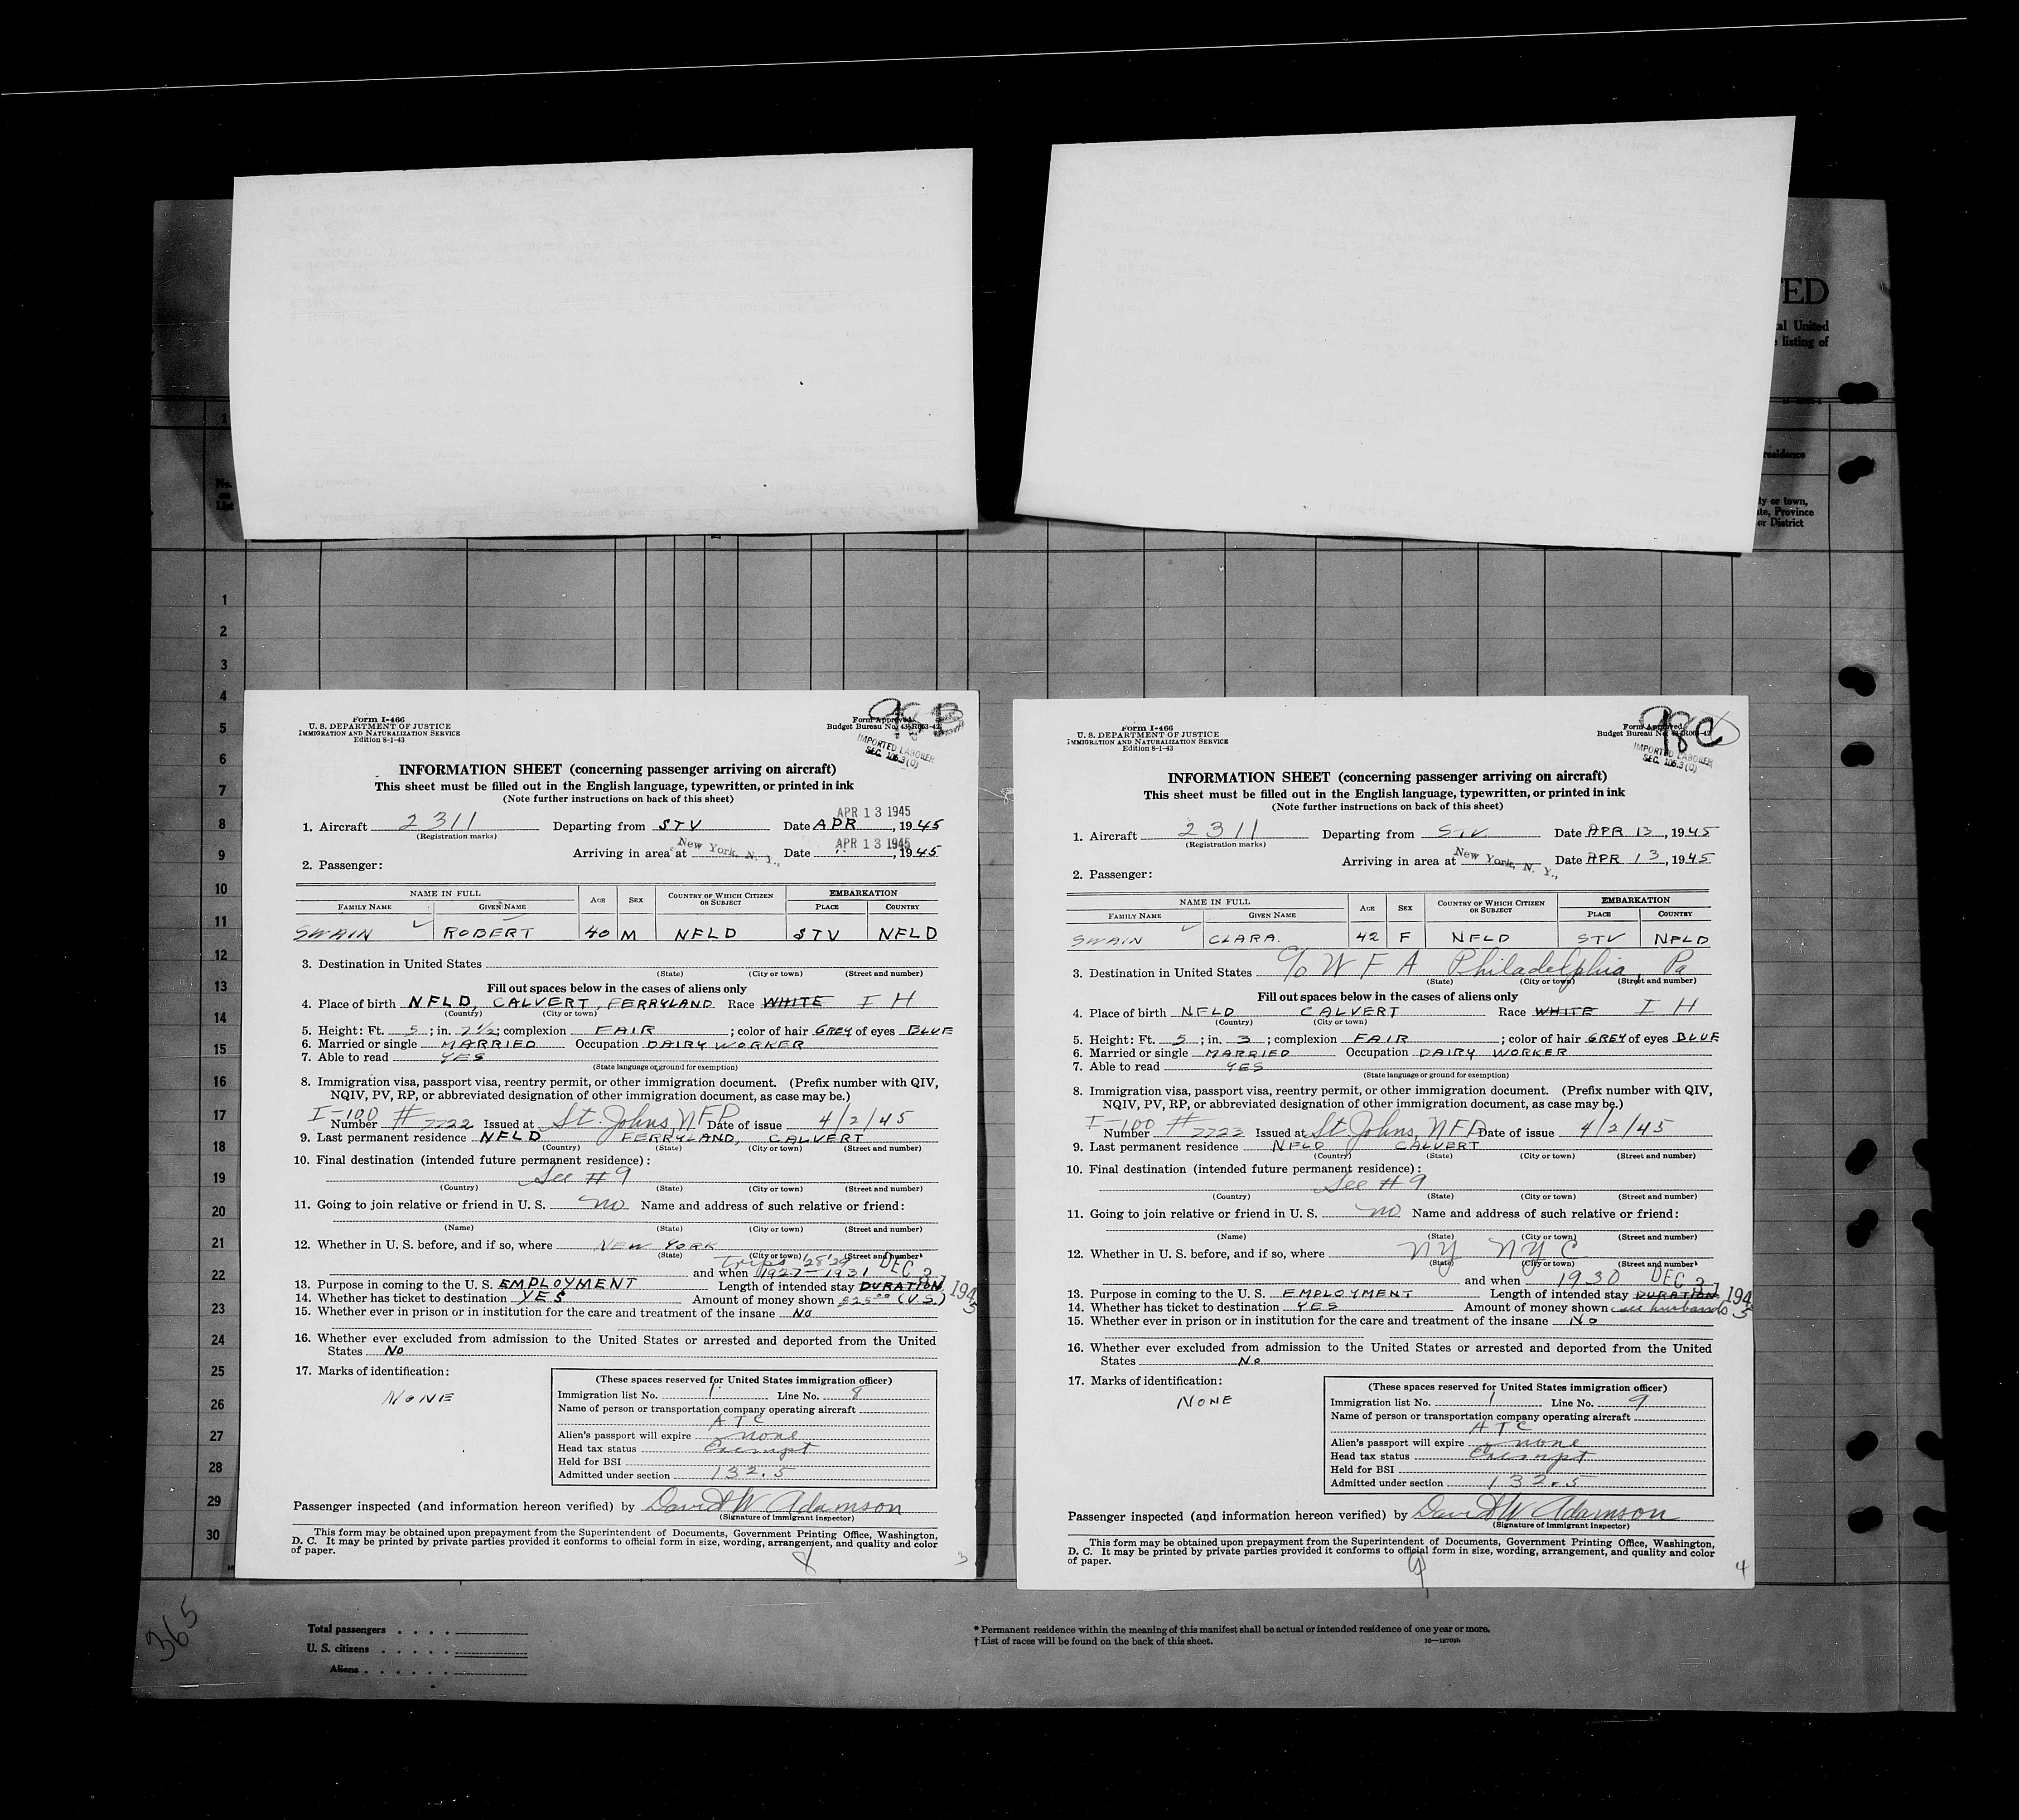 ED
al United
listing of
1
No.
on
List
residence
ty or town,
ate, Province
or District
1
2
3
4
5
6
7
8
9
10
11
12
13
14
15
16
17
18
19
20
21
22
23
24
25
26
27
28
29
30
Form I-466
U. S. DEPARTMENT OF JUSTICE
IMMIGRATION AND NATURALIZATION SERVICE
Edition 8-1-43
98B
Form Approved
Budget Bureau No. 43-R063-42
IMPORTED LABORER
SEC. 106.3(0)
INFORMATION SHEET (concerning passenger arriving on aircraft)
This sheet must be filled out in the English language, typewritten, or printed in ink
(Note further instructions on back of this sheet)
APR 13 1945
1. Aircraft 2311 Departing from STV Date APR, 1945
(Registration marks)
APR 13 1945
Arriving in area at New York, N. Y., Date , 1945
2. Passenger:
NAME IN FULL AGE SEX COUNTRY OF WHICH CITIZEN OR SUBJECT EMBARKATION
FAMILY NAME GIVEN NAME PLACE COUNTRY
SWAIN ROBERT 40 M NFLD STV NFLD
3. Destination in United States
(State) (City or town) (Street and number)
Fill out spaces below in the cases of aliens only
4. Place of birth NFLD, CALVERT, FERRYLAND Race WHITE I H
(Country) (City or town)
5. Height: Ft. 5; in. 7½; complexion FAIR; color of hair GREY of eyes BLUE
6. Married or single MARRIED Occupation DAIRY WORKER
7. Able to read YES
(State language or ground for exemption)
8. Immigration visa, passport visa, reentry permit, or other immigration document. (Prefix number with QIV,
NQIV, PV, RP, or abbreviated designation of other immigration document, as case may be.)
I-100
Number # 7722 Issued at St. Johns, NFD Date of issue 4/2/45
9. Last permanent residence NFLD FERRYLAND, CALVERT
(Country) (State) (City or town) (Street and number)
10. Final destination (intended future permanent residence):
See #9
(Country) (State) (City or town) (Street and number)
11. Going to join relative or friend in U. S. no Name and address of such relative or friend:
(Name) (State) (City or town) (Street and number)
12. Whether in U. S. before, and if so, where NEW YORK
(State) (City or town) (Street and number)
trips '28 '29
and when 1927-1931 DEC 31 1945
13. Purpose in coming to the U. S. EMPLOYMENT Length of intended stay DURATION
14. Whether has ticket to destination YES Amount of money shown $25.00 (U.S.)
15. Whether ever in prison or in institution for the care and treatment of the insane No
16. Whether ever excluded from admission to the United States or arrested and deported from the United
States No
17. Marks of identification:
NONE
(These spaces reserved for United States immigration officer)
Immigration list No. 1 Line No. 8
Name of person or transportation company operating aircraft
ATC
Alien's passport will expire none
Head tax status Exempt
Held for BSI
Admitted under section 132.5
Passenger inspected (and information hereon verified) by David W Adamson
(Signature of immigrant inspector)
This form may be obtained upon prepayment from the Superintendent of Documents, Government Printing Office, Washington,
D. C. It may be printed by private parties provided it conforms to official form in size, wording, arrangement, and quality and color
of paper.
3
Form I-466
U. S. DEPARTMENT OF JUSTICE
IMMIGRATION AND NATURALIZATION SERVICE
Edition 8-1-43
98C
Form Approved
Budget Bureau No. 43-R063-42
IMPORTED LABORER
SEC. 106.3(0)
INFORMATION SHEET (concerning passenger arriving on aircraft)
This sheet must be filled out in the English language, typewritten, or printed in ink
(Note further instructions on back of this sheet)
1. Aircraft 2311 Departing from STV Date APR 13, 1945
(Registration marks)
Arriving in area at New York, N. Y., Date APR 13, 1945
2. Passenger:
NAME IN FULL AGE SEX COUNTRY OF WHICH CITIZEN OR SUBJECT EMBARKATION
FAMILY NAME GIVEN NAME PLACE COUNTRY
SWAIN CLARA. 42 F NFLD STV NFLD
3. Destination in United States c/o W F A Philadelphia, Pa
(State) (City or town) (Street and number)
Fill out spaces below in the cases of aliens only
4. Place of birth NFLD CALVERT Race WHITE I H
(Country) (City or town)
5. Height: Ft. 5; in. 3; complexion FAIR; color of hair GREY of eyes BLUE
6. Married or single MARRIED Occupation DAIRY WORKER
7. Able to read YES
(State language or ground for exemption)
8. Immigration visa, passport visa, reentry permit, or other immigration document. (Prefix number with QIV,
NQIV, PV, RP, or abbreviated designation of other immigration document, as case may be.)
I-100
Number # 7723 Issued at St Johns, NFD Date of issue 4/2/45
9. Last permanent residence NFLD CALVERT
(Country) (State) (City or town) (Street and number)
10. Final destination (intended future permanent residence):
See #9
(Country) (State) (City or town) (Street and number)
11. Going to join relative or friend in U. S. no Name and address of such relative or friend:
(Name) (State) (City or town) (Street and number)
12. Whether in U. S. before, and if so, where NY NYC
(State) (City or town) (Street and number)
and when 1930 DEC 31 1945
13. Purpose in coming to the U. S. EMPLOYMENT Length of intended stay DURATION
14. Whether has ticket to destination YES Amount of money shown see husbands
15. Whether ever in prison or in institution for the care and treatment of the insane No
16. Whether ever excluded from admission to the United States or arrested and deported from the United
States No
17. Marks of identification:
NONE
(These spaces reserved for United States immigration officer)
Immigration list No. 1 Line No. 9
Name of person or transportation company operating aircraft
ATC
Alien's passport will expire none
Head tax status Exempt
Held for BSI
Admitted under section 132.5
Passenger inspected (and information hereon verified) by David W Adamson
(Signature of immigrant inspector)
This form may be obtained upon prepayment from the Superintendent of Documents, Government Printing Office, Washington,
D. C. It may be printed by private parties provided it conforms to official form in size, wording, arrangement, and quality and color
of paper.
4
365
Total passengers
U. S. citizens
Aliens
* Permanent residence within the meaning of this manifest shall be actual or intended residence of one year or more.
† List of races will be found on the back of this sheet.
16—18709b